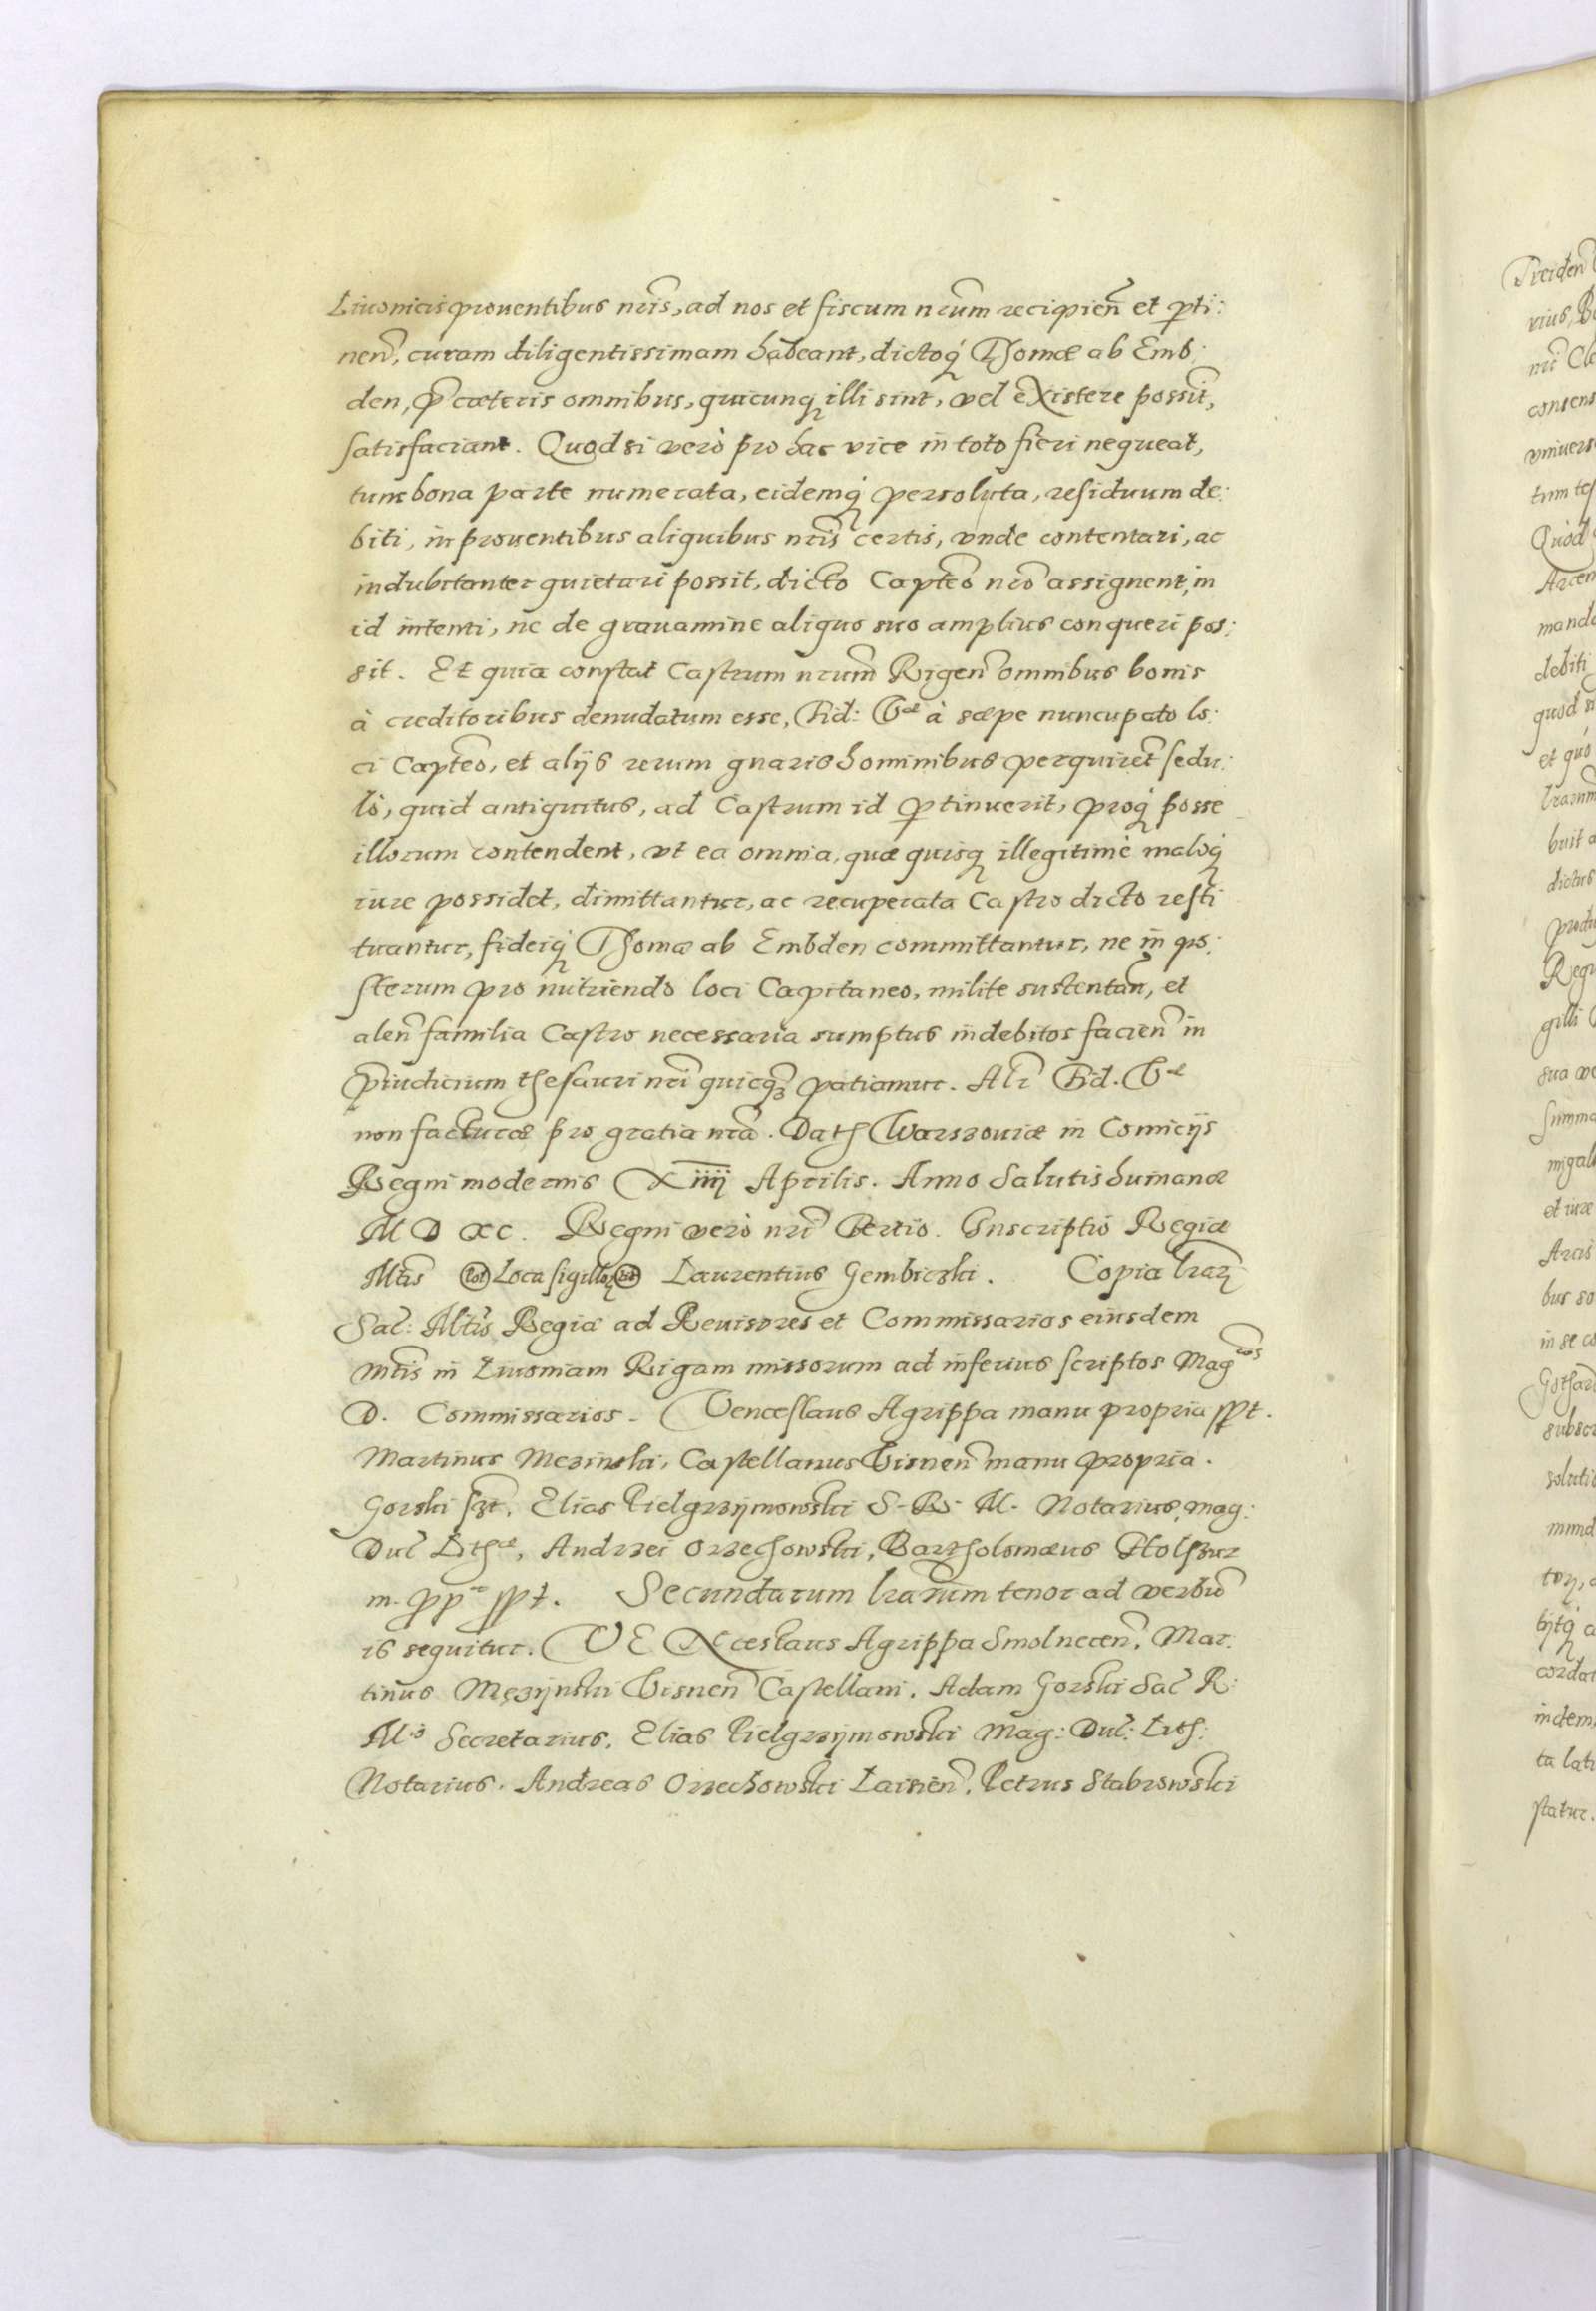 Liuonicis prouentibus nr̃is, ad nos et fiscum nr̃um recipien̄ et ꝑti:
nen̄, curam diligentissimam habeant, dictoq́ꝫ Thomæ ab Emb:
den, p̃ cæteris omnibus, quicunqꝫ illi sint, vel existere possīt,
satisfaciant. Quod si verò pro hac vice in toto fieri nequeat,
tum bona parte numerata, eidemq́ꝫ persoluta, residuum de:
biti, in prouentibus aliquibus nr̃is certis, vnde contentari, ac
indubitanter quietari possit, dicto Capt̃eo nr̃o assignent, in
id intenti, ne de grauamine aliquo suo amplius conqueri pos:
sit. Et quia constat Castrum nr̃um Rigen̄ omnibus bonis
à creditoribus denudatum esse, Fid: Vᵃᵉ à sæpe nuncupato lo:
ci Capt̃eo, et alijs rerum gnaris hominibus perquiret sedu:
lò, quid antiquitus, ad Castrum id ꝑtinuerit, proq́ꝫ posse
illorum contendent, vt ea omnia, quæ quisqꝫ illegitimè maloq́ꝫ
iure possidet, dimittantur, ac recuperata Castro dicto resti
tuantur, fideiq́ꝫ Thomæ ab Embden committantur, ne in pos:
sterum pro nutriendo loci Capitaneo, milite sustentan̄, et
alen̄ familia Castro necessaria sumptus indebitos facien̄ in
p̃iudicium thesauri nr̃i quicq̃ꝫ patiamur. Alr̃ Fid. Vᵃᵉ
non facturæ pro gratia nr̃a. Dat Warszouiæ in Comicijs
Regni modernis Xiiij Aprilis. Anno Salutis humanæ
M D XC. Regni verò nr̃i Tertio. Inscriptio Regiæ
Mt̃is Loca sigilloꝝ Laurentius Gembiczki. Copia lr̃aꝝ
Sac̄: Mt̃is Regiæ ad Reuisores et Commissarios eiusdem
mt̃is in Liuoniam Rigam missorum ad inferius scriptos Mag^cos
D. Commissarios. Venceslaus Agrippa manu propria sspt.
Martinus Mezinski, Castellanus Visnen̄ manu propria.
Gorski sst, Elias Pielgrzijmowski S. R. M. Notarius, mag:
Duc̄ Lithᵃᵉ, Andrzei Orzechowski, Bartholomæus Holszur
m. pp sspt. Secundarum lr̃arum tenor ad verbū
is sequitur. VENceslaus Agrippa Smolnecen̄, Mar:
tinus Męzijnski Visnen̄ Castellani, Adam Gorski Sac̄ R:
M. Secretarius, Elias Pielgrzijmowski Mag: Duc̄: Lith:
Notarius. Andreas Orzechowski Laisien̄, Petrus Stabrowski